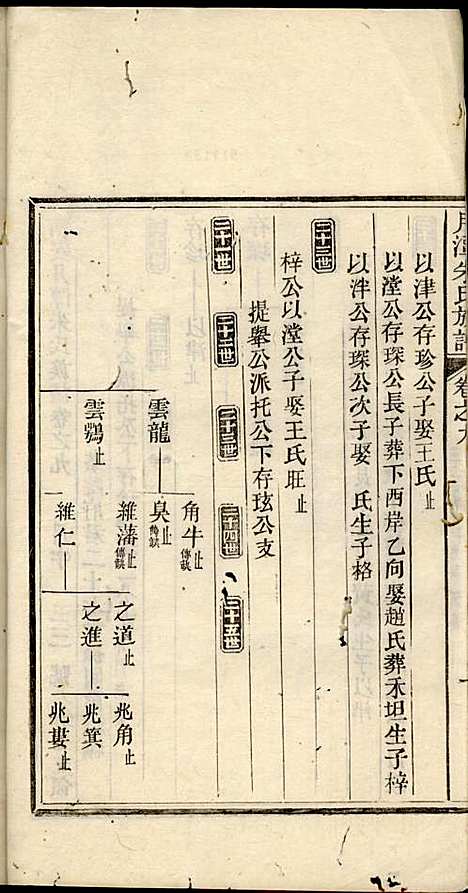 月潭朱氏族譜 卷之九
以津公存珍公子娶王氏止
以瀅公存琛公長子葬下西岸乙向娶趙氏葬禾坦生子梓
以泮公存琛公次子娶 氏生子格
二十二世
梓公以瀅公子娶王氏旺止
提舉公派托公下存玹公支
二十一世 二十二世 二十三世 二十四世 二十五世
雲龍 角牛止
傳缺
臭止
雲鶚止 維藩止
傳缺
維仁 之道止 兆角止
之進 兆箕
兆婁止